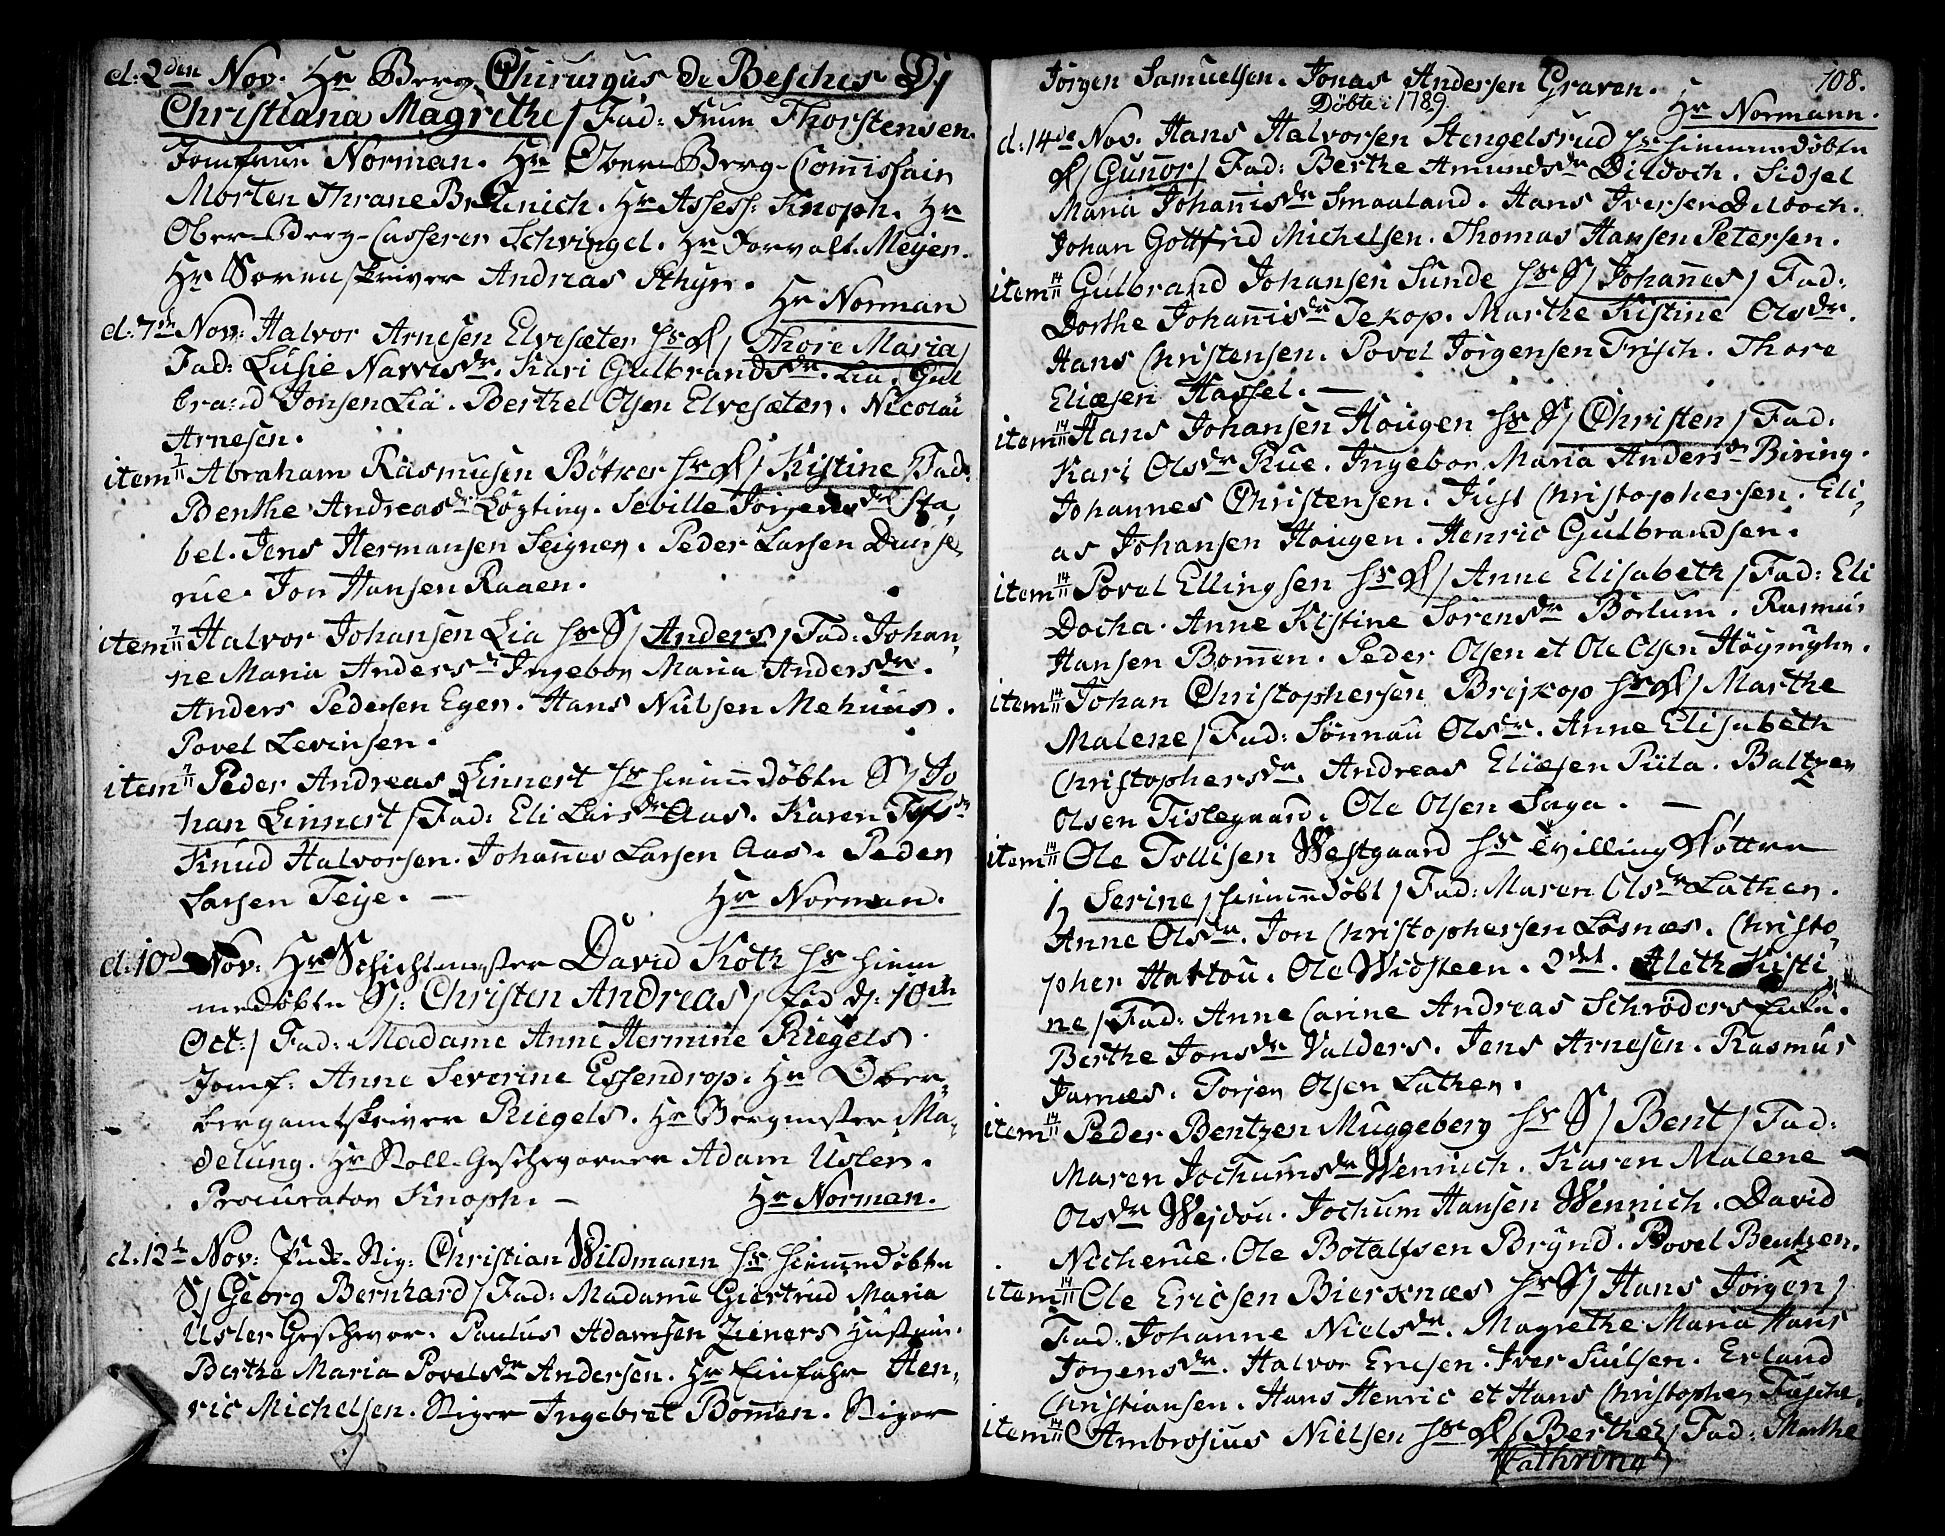 d: 2den Nov. Hr Berg Chirurgus de Besches D/
Christiana Magrethe/ Fad: Fruu Thorstensen.
Jomfruu Norman. Hr Ober-Berg-Commissair
Morten Thrane Brünich. Hr Assess: Knoph. Hr
Ober-Berg-Casserer Schvingel. Hr Forvalt. Meyer.
Hr Sorenskriver Andreas Schyn.
Hr Norman
d: 7de Nov: Halvor Arnesen Elvesæter hs D/ Thore Maria/
Fad: Lusie Narvesdr. Kari Gulbrandsdr. Lia. Gul
brand Jonsen Lia. Berthel Olsen Elvesæter. Nicolai
Arnesen.
item 7/11 Abraham Rasmusen Bötker hs D/ Kistine/ Fad:
Benthe Andreasdr Lögting. Seville Jörgensdr Sta,
bel. Jens Hermansen Seigner. Peder Larsen Dunse,
rue. Jon Hansen Raaen.
item 7/11 Halvor Johansen Lia hs S/ Anders/ Fad: Johan,
ne Maria Andersdr Ingebor Maria Andersdr.
Anders Pedersen Eger. Hans Nilsen Mehuus.
Povel Levinsen.
item 7/11 Peder Andreas Linnert hs hiemmedöbte S/ Jo
han Linnert/ Fad: Eli Larsdr Aas. Karen
Knud Halvorsen. Johannes Larsen Aas. Peder
Larsen Teije. —
Hr Norman.
d: 10de Nov: Hr Schichtmester David Koth hs hiem
medöbte S/: Christen Andreas/ föd d: 10de
Oct:/ Fad: Madame Anne Hermine Riegels.
Jomf: Anne Severine Essendrop. Hr Ober-
bergamtskriver Riegels. Hr Bergmester Ma,
delung. Hr Stoll-Geschworner Adam Usler.
Procurator Knoph. —
Hr Norman.
d: 12t Nov: Stig: Christian Wildmann hs hiemmedöbte
S/ Georg Bernhard/ Fad: Madame Giertrud Maria
Usler Geschwor. Paulus Adamsen Zieners Hustru.
Berthe Maria Povelsdr Andersen. Hr Einfahr Hen,
ric Michelsen. Stiger Ingebret Bomen. Stiger
108.
Jörgen Samuelsen. Jonas Andersen Graven.
Döbte i 1789.
Hr Normann.
d: 14de Nov. Hans Halvorsen Stengelsrud hs hiemmedöbte
D/ Gunor/ Fad: Berthe Amundsdr Dildoch. Sidsel
Maria Johannisdr Smaaland. Hans Iversen Deldoch.
Johan Gottfrid Michelsen. Thomas Hansen Petersen.
item 14/11 Gulbrand Johansen Sunde hs S/ Johannes/ Fad:
Dorthe Johannisdr Tekop. Marthe Kistine Olsdr.
Hans Christensen. Povel Jörgensen Frisch. Thore
Eliæsen Hassel. —
item 14/11 Hans Johansen Hougen hs S/ Christen/ Fad:
Kari Olsdr Rue. Ingebor Maria Andersdr Biring.
Johannes Christensen. Just Christophersen. Eli,
as Johansen Hougen. Henric Gulbrandsen.
item 14/11 Povel Ellingsen hs D/ Anne Elisabeth/ Fad: Eli
Docka. Anne Kistine Sörensdr Borlum. Rasmus
Hansen Bomen. Peder Olsen et Ole Olsen
item 14/11 Johan Christophersen Brejkop hs D/ Marthe
Malene/ Fad: Sönnau Olsdr. Anne Elisabeth
Christophersdr. Andreas Eliæsen Piila. Baltzer
Olsen Tislegaard. Ole Olsen Saga. —
item 14/11 Ole Tollisen Westgaard hs tvilling Döttre
1/ Serine/ hiemmedöbt/ Fad: Maren Olsdr Lathen.
Anne Olsdr. Jon Christophersen Losnæs. Christo,
pher Hartou. Ole Widsteen. 2det. Aleth Kisti,
ne/ Fad: Anne Carine Andreas Schröders Enke.
Berthe Jonsdr Valders. Jens Arnesen. Rasmus
Jamæs. Torjer Olsen Lathen.
item 14/11 Peder Bentzen Muggeberg hs S/ Bent/ Fad:
Maren Jochumsdr Wennich. Karen Malene
Olsdr Wejdou. Jochum Hansen Wennich. David
Nicherue. Ole Botalfsen Brÿnd. Povel Bentzen.
item 14/11 Ole Ericsen Biercnæs hs S/ Hans Jörgen/
Fad: Johanne Nielsdr. Magrethe Maria Hans
Jörgensdr. Halvor Ericsen. Iver Siulsen. Erland
Christiansen. Hans Henric et Hans Christopher
item 14/11 Ambrosius Nielsen hs D/ Berthe/ Fad: Marthe
Cathrina/